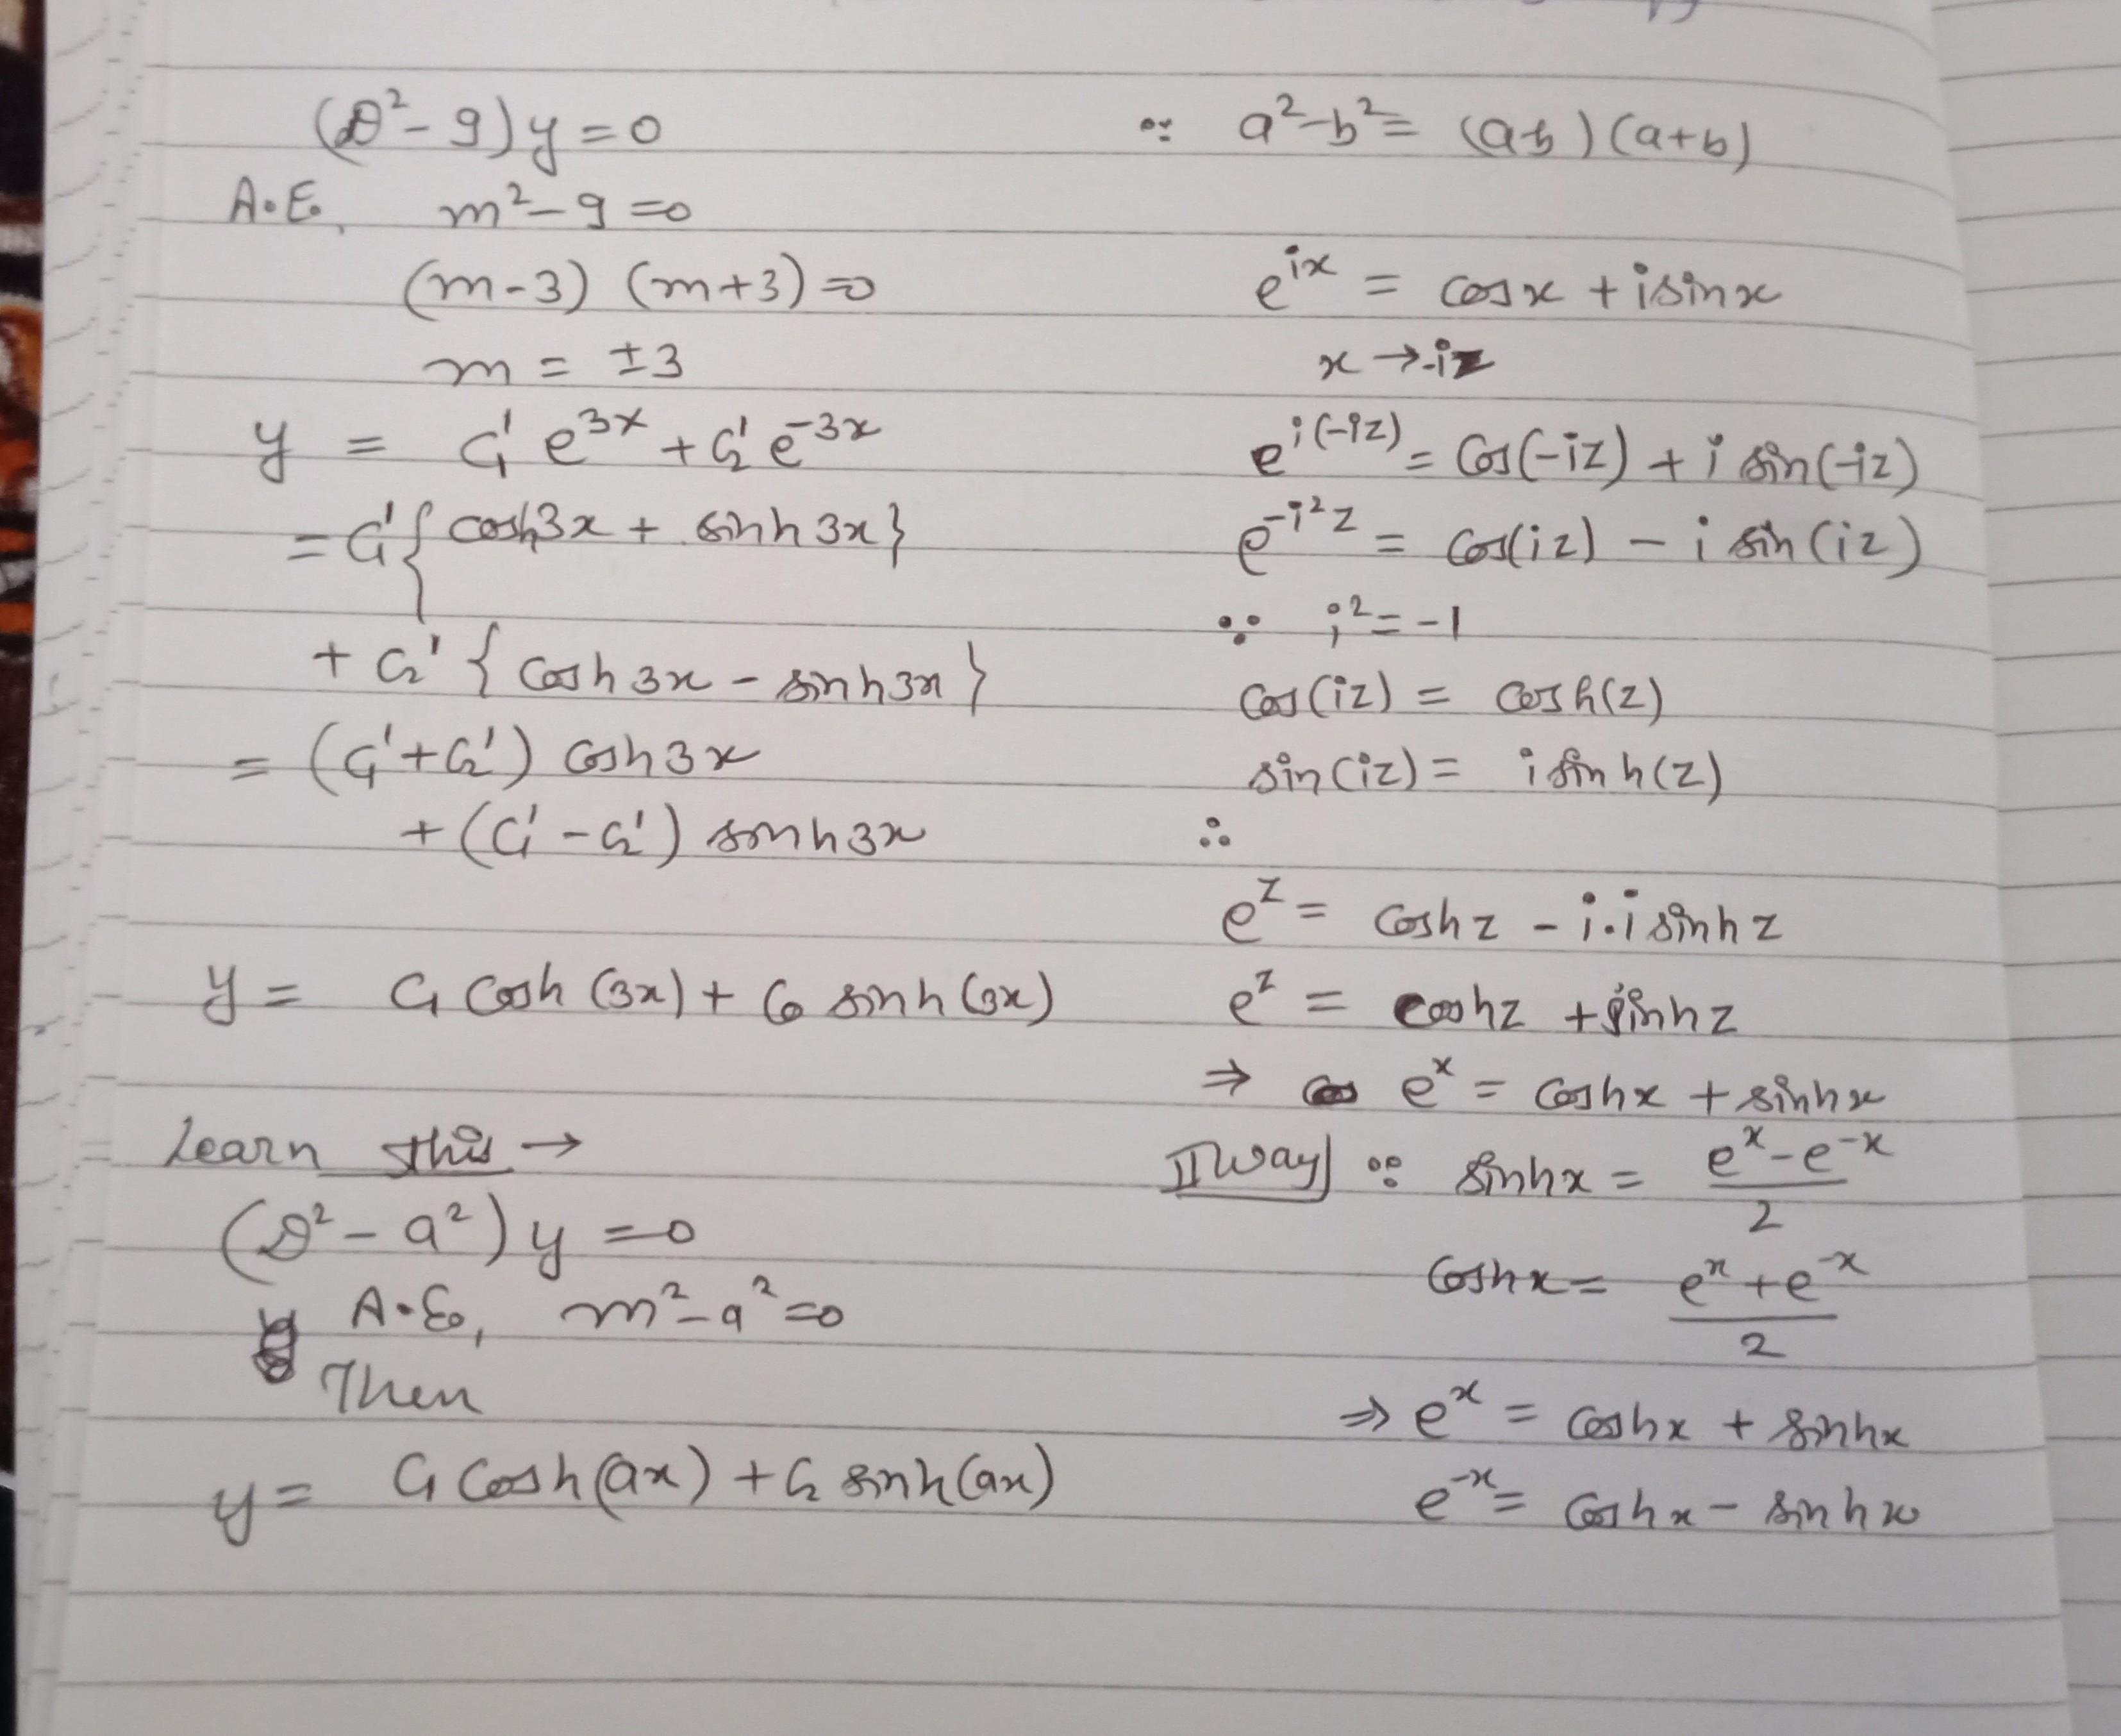 (D²-9)y=0
A.E. m²-9=0
(m-3) (m+3)=0
m = ±3
y = C₁' e^{3x} + C₂' e^{-3x}
= C₁' { cosh3x + sinh3x}
+ C₂' { cosh3x - sinh3x }
= (C₁'+C₂') cosh3x
+ (C₁'-C₂') sinh3x
y = C₁ cosh (3x) + C₂ sinh (3x)
Learn this →
(D²-a²)y=0
A.E., m²-a²=0
Then
y= C₁ Cosh(ax) + C₂ sinh(ax)
∵ a²-b²= (a-b)(a+b)
e^{ix} = cosx + isinx
x → -iz
e^{i(-iz)} = Cos(-iz) + i sin(-iz)
e^{-i²z} = Cos(iz) - i sin(iz)
∵ i²=-1
Cos(iz) = cosh(z)
sin(iz) = i sinh(z)
∴
e^z = coshz - i.i sinhz
e^z = coshz + sinhz
⇒ e^x = coshx + sinhx
II Way ∵ sinhx = (e^x-e^{-x})/2
Coshx = (e^x+e^{-x})/2
⇒ e^x = coshx + sinhx
e^{-x} = coshx - sinhx